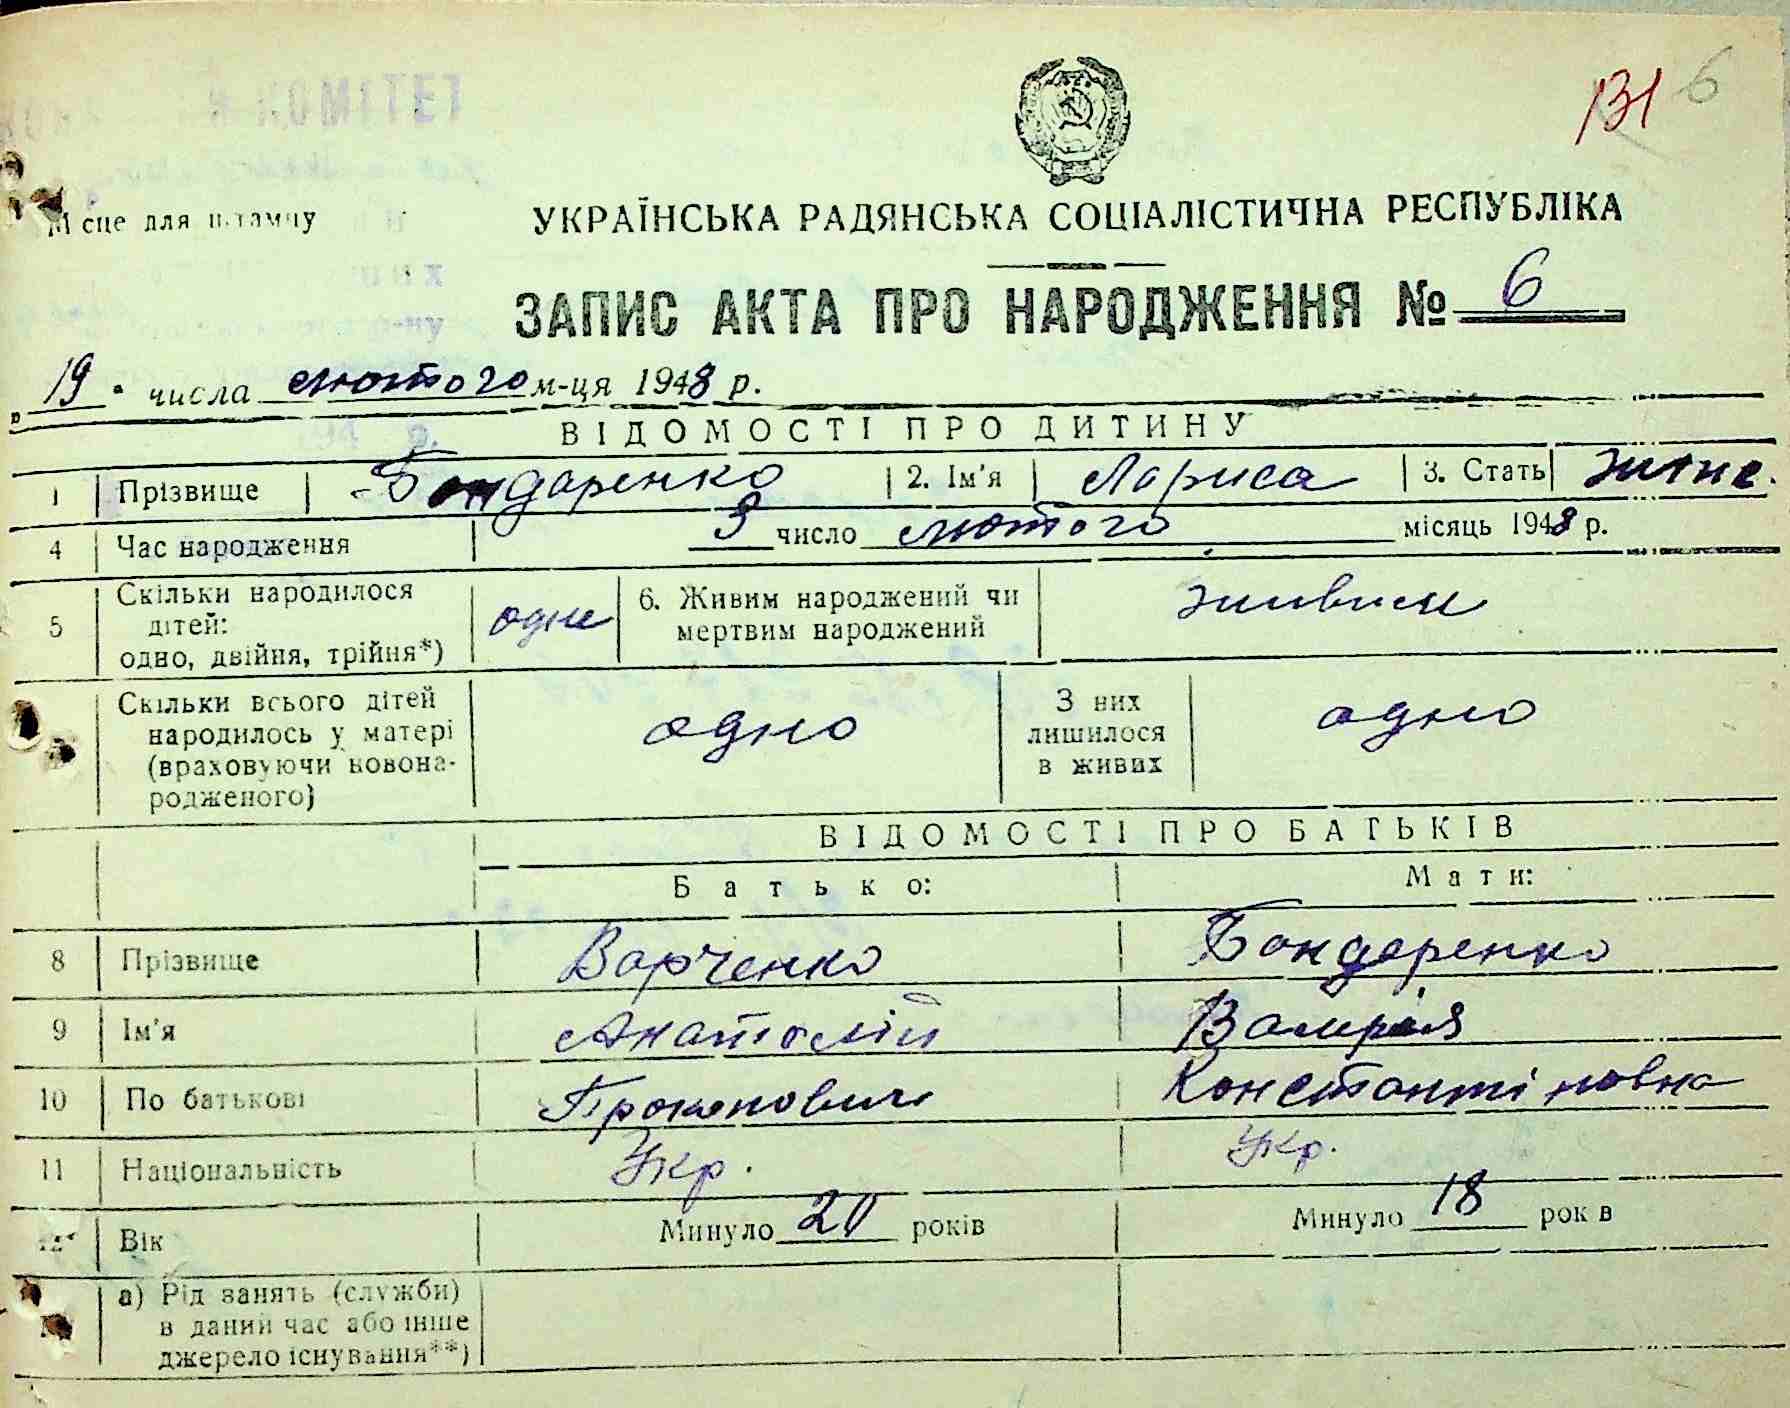 131 6
КОМІТЕТ
Місце для штампу
УКРАЇНСЬКА РАДЯНСЬКА СОЦІАЛІСТИЧНА РЕСПУБЛІКА
ЗАПИС АКТА ПРО НАРОДЖЕННЯ № 6
„19“ числа лютого м-ця 1948 р.
ВІДОМОСТІ ПРО ДИТИНУ
1 Прізвище Бондаренко 2. Ім'я Лариса 3. Стать жіноч.
4 Час народження 3 число лютого місяць 1948 р.
5 Скільки народилося дітей: одно, двійня, трійня*) одне 6. Живим народжений чи мертвим народжений живим
Скільки всього дітей народилось у матері (враховуючи новонародженого) одно З них лишилося в живих одно
ВІДОМОСТІ ПРО БАТЬКІВ
Батько: Мати:
8 Прізвище Варченко Бондаренко
9 Ім'я Анатолій Валерія
10 По батькові Прокопович Константіновна
11 Національність Укр. Укр.
12 Вік Минуло 20 років Минуло 18 рок в
а) Рід занять (служби)
в даний час або інше
джерело існування**)